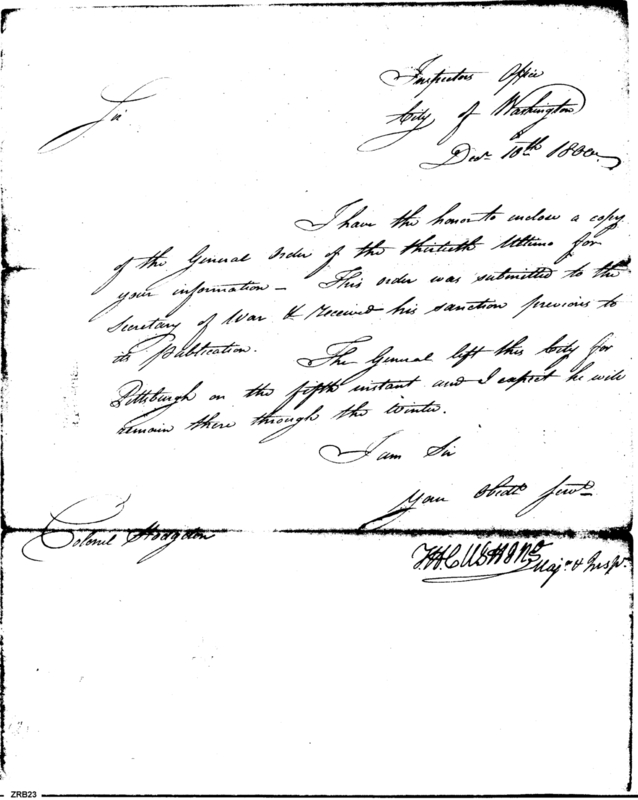 Inspectors Office
City of Washington
Sir
Decr 10th 1800.
I have the honor to enclose a copy
of the General order of the thirtieth Ultimo for
your information – This order was submitted to the
Secretary of War & received his sanction previous to
its publication. The General left this City for
Pittsburgh on the fifth instant and I expect he will
remain there through the Winter.
I am Sir
Your Obedt Servt
Colonel Hodgdon
T H CUSHING
Majr & Inspr.
ZRB23